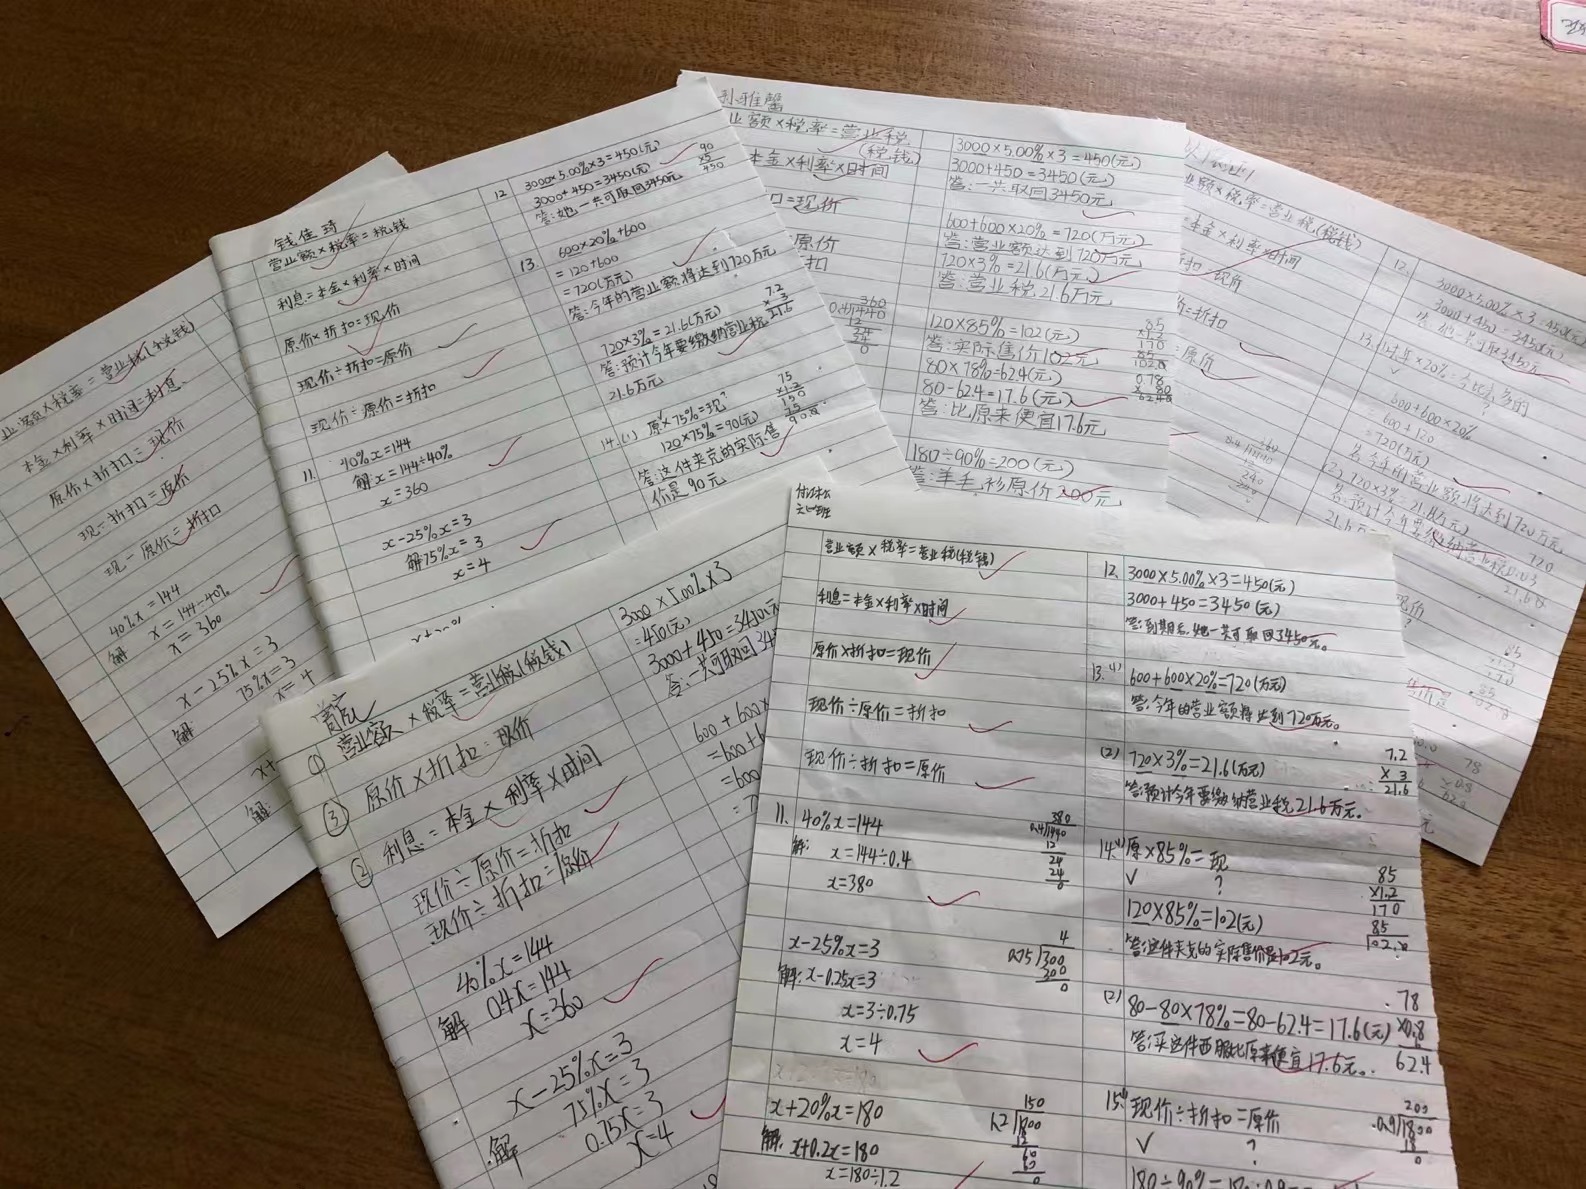 业额×税率=营业税(税钱)
本金×利率×时间=利息
原价×折扣=现价
现÷折扣=原价
现÷原价=折扣
40%x=144
解 x=144÷40%
x=360
x-25%x=3
解 75%x=3
x=4
解:
钱佳琦
营业额×税率=税钱
利息=本金×利率×时间
原价×折扣=现价
现价÷折扣=原价
现价÷原价=折扣
11. 40%x=144
解x=144÷40%
x=360
x-25%x=3
解75%x=3
x=4
12 3000×5.00%×3=450(元)
3000+450=3450(元)
答:她一共可取回3450元
90
×5
450
13. 600×20%+600
=120+600
=720(万元)
答:今年的营业额将达到720万元
720×3%=21.6(万元)
答:预计今年要缴纳营业税
21.6万元
7.2
×3
21.6
14.(1) 原×75%=现?
120×75%=90(元)
答:这件夹克的实际售
价是90元
75
×1.2
150
75
90.0
雅馨
业额×税率=营业税
(税钱)
本金×利率×时间
=现价
原价
扣
360
0.4/1440
12
24
24
0
3000×5.00%×3=450(元)
3000+450=3450(元)
答:一共取回3450元
600+600×20%=720(万元)
答:营业额达到720万元
720×3%=21.6(万元)
答:营业税21.6万元
120×85%=102(元)
答:实际售价102元
80×78%=62.4(元)
80-62.4=17.6(元)
答:比原来便宜17.6元
180÷90%=200(元)
答:羊毛衫原价200元
业额×税率=营业税(税钱)
=本金×利率×时间
折扣 现价
=折扣
原价
12. 3000×5.00%×3=450(元)
3000+450=3450(元)
600+600×20%
=600+120
=720(万元)
答:今年的营业额将达到720万元
(2) 720×3%=21.6(万元)
答:预计今年要缴纳营业税
21.6万
营业额×税率=营业税(税钱)
③ 原价×折扣=现价
② 利息=本金×利率×时间
现价÷原价=折扣
现价÷折扣=原价
40%x=144
解 0.4x=144
x=360
x-25%x=3
解 75%x=3
0.75x=3
x=4
3000×5.00%×3
=450(元)
3000+450=3450(元
答:一共可取回34
600+600×
=600+
=600
营业额×税率=营业税(税钱)
利息=本金×利率×时间
原价×折扣=现价
现价÷原价=折扣
现价÷折扣=原价
11. 40%x=144
解: x=144÷0.4
x=380
380
0.4/1440
12
24
24
0
x-25%x=3
解:x-0.25x=3
x=3÷0.75
x=4
4
0.75/300
300
0
x+20%x=180
解: x+0.2x=180
x=180÷1.2
150
1.2/1800
12
60
60
0
12. 3000×5.00%×3=450(元)
3000+450=3450(元)
答:到期后,她一共可取回3450元。
13.(1) 600+600×20%=720(万元)
答:今年的营业额将达到720万元。
(2) 720×3%=21.6(万元)
答:预计今年要缴纳营业税21.6万元。
7.2
×3
21.6
14.(1) 原×85%=现
√ ?
120×85%=102(元)
答:这件夹克的实际售价是102元。
85
×1.2
170
85
102.0
(2) 80-80×78%=80-62.4=17.6(元)
答:买这件西服比原来便宜17.6元。
.78
×0.8
62.4
15.(1) 现价÷折扣=原价
√ ?
200
0.9/1800
18
0